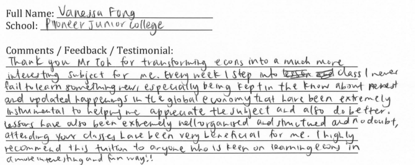 Full Name: Vanessa Fong
School: Pioneer Junior College
Comments / Feedback / Testimonial:
Thank you Mr Toh for transforming econs into a much more
interesting subject for me. Every week I step into class I never
fail to learn something new, especially being kept in the know about newest
and updated happenings in the global economy that have been extremely
instrumental to helping me appreciate the subject and also do better.
Lessons have also been extremely well organized and structured and no doubt,
attending your classes have been very beneficial for me. I highly
recommend this tuition to anyone who is keen on learning econs in
a more interesting and fun way!!